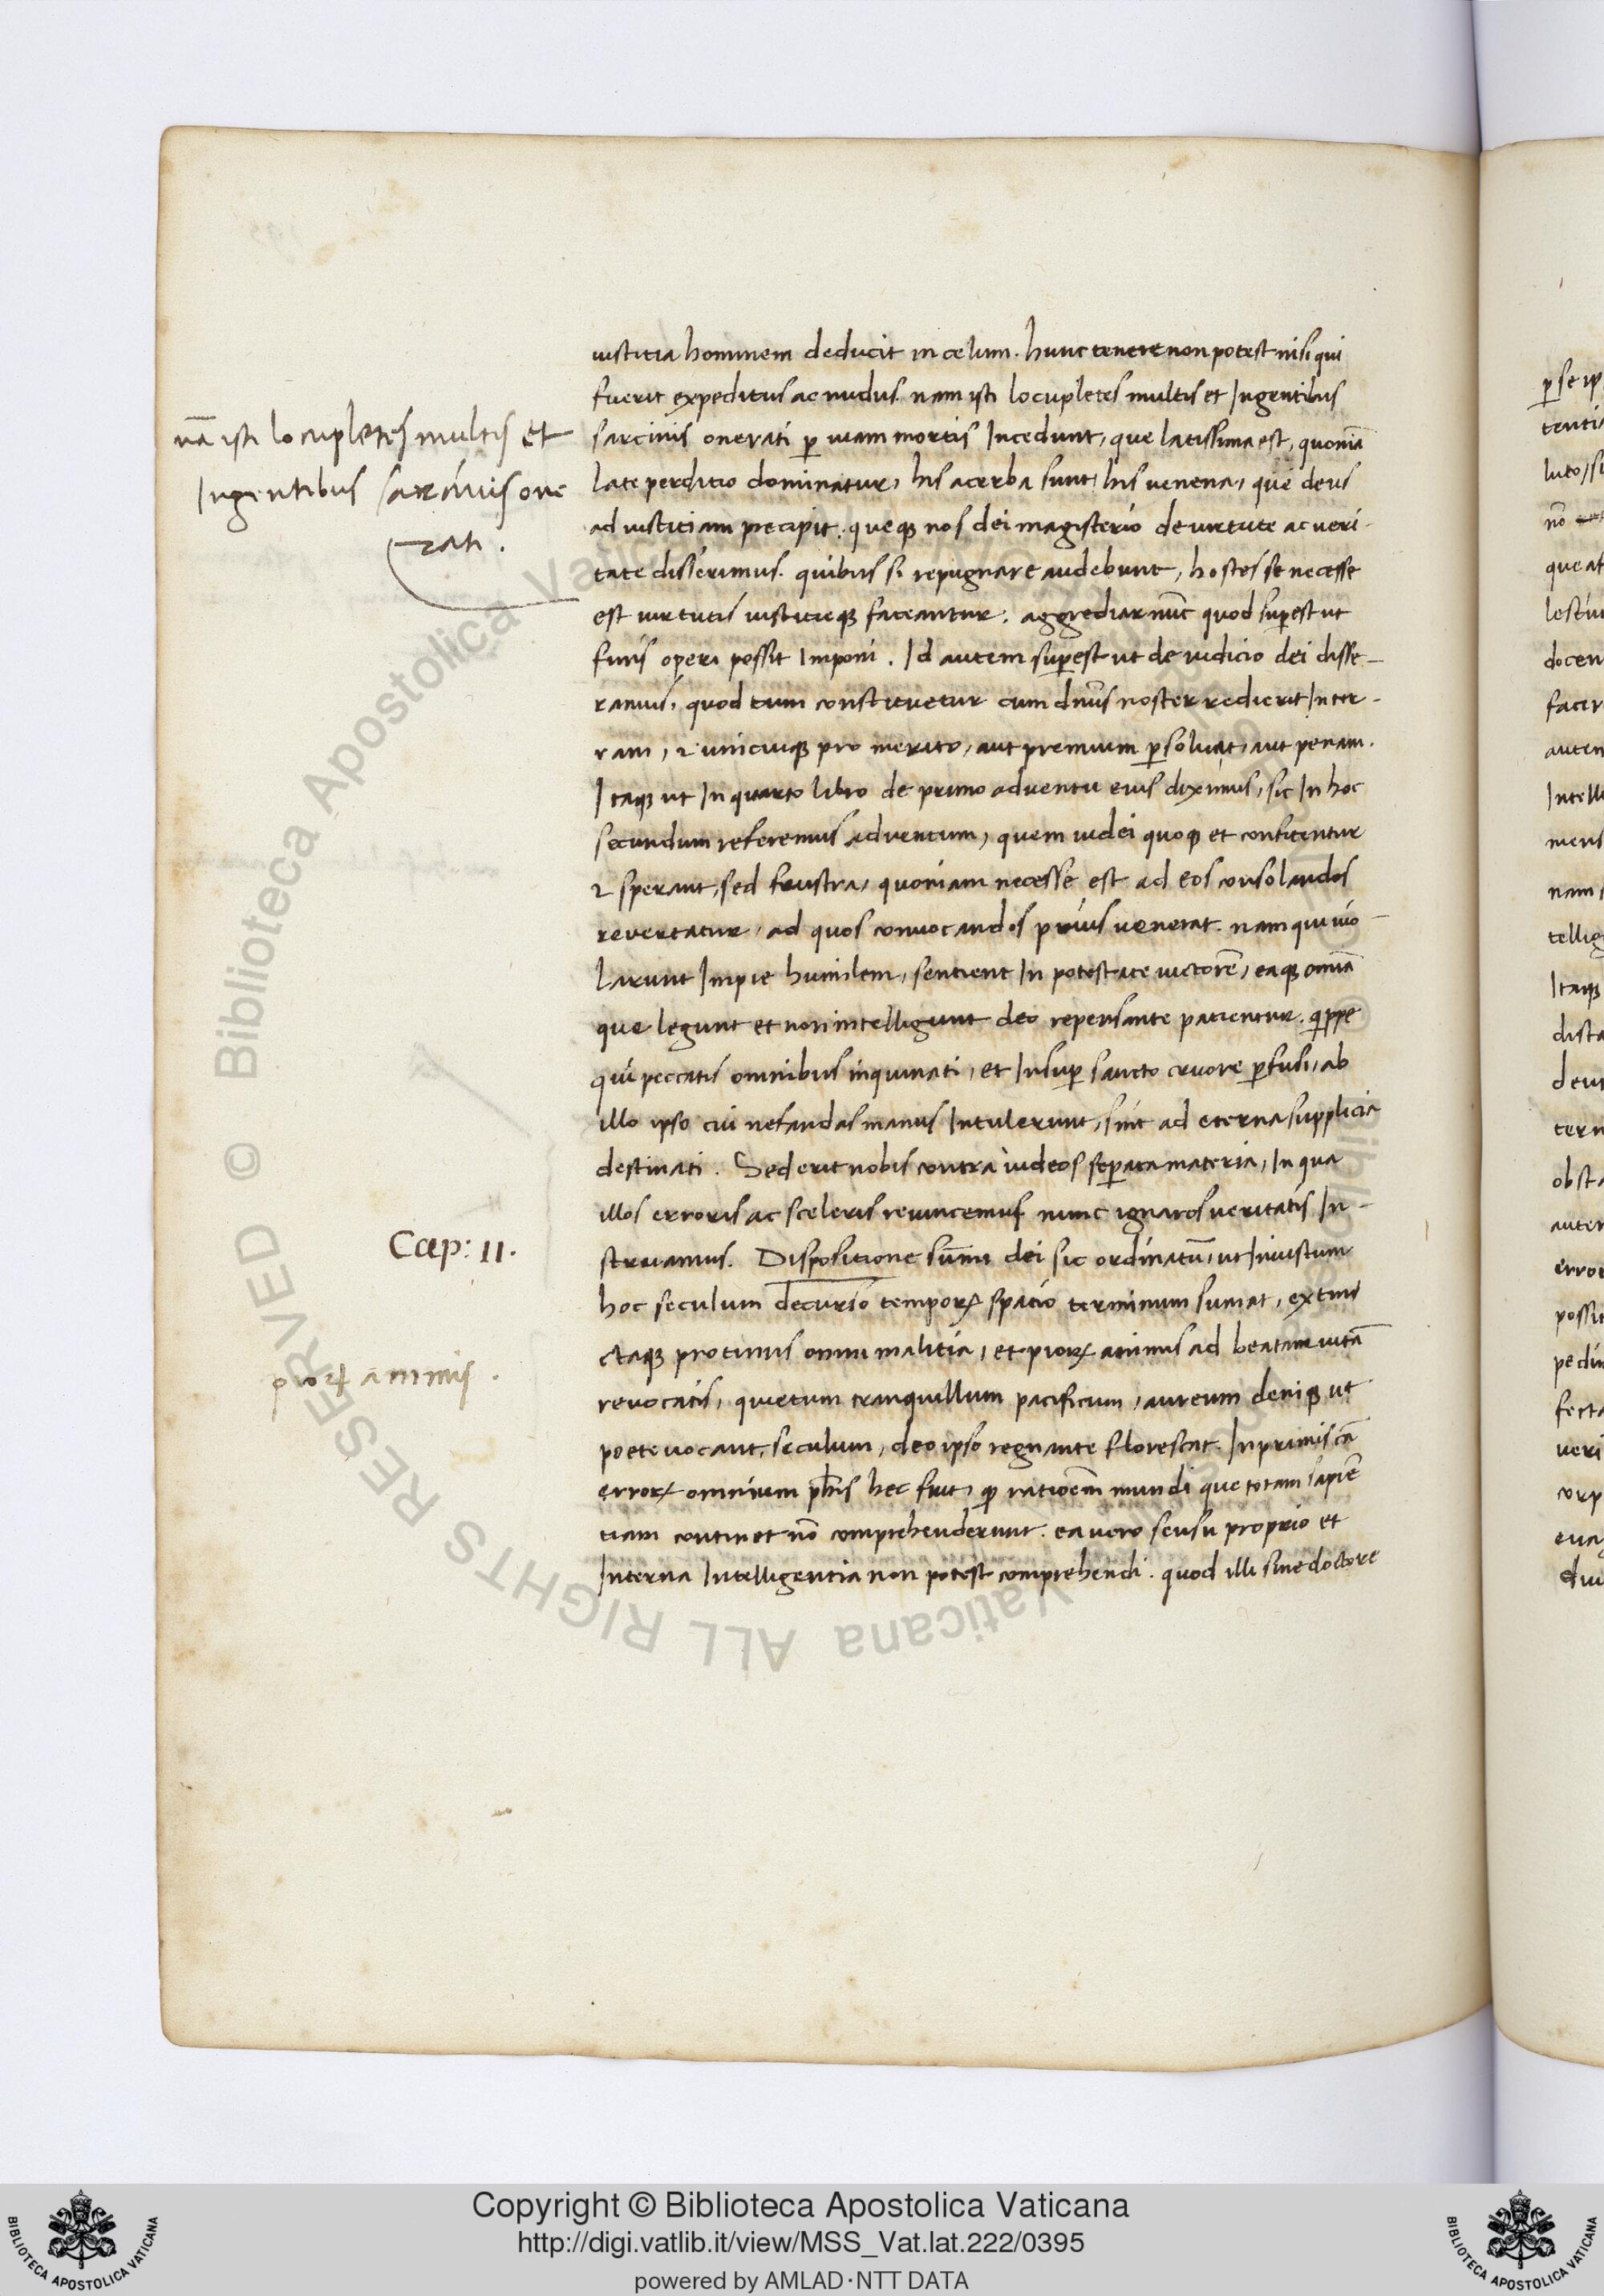 nā isti locupletes multis et
Ingentibus sarcinis one
rati.
Cap: II.
piorꝝ animis.
iustitia hominem deducit in celum. hunc tenere non potest nisi qui
fuerit expeditus ac nudus. nam isti locupletes multis et Ingentibus
sarcinis onerati ꝑ uiam mortis Incedunt, que latissima est, quoniā
late perditio dominatur, his acerba sunt, his uenena, que deus
ad iustitiam precipit. queqꝫ nos dei magisterio de uirtute ac ueri-
tate disserimus. quibus si repugnare audebunt, hostes se necesse
est uirtutis iustitieqꝫ fateantur. aggrediar nūc quod suꝑest ut
finis operi possit Imponi. Id autem suꝑest ut de iudicio dei disse-
ramus, quod tum constituetur cum dn̄us noster redierit In ter-
ram, ⁊ unicuiqꝫ pro merito, aut premium ꝑsoluat, aut penam.
Itaqꝫ ut In quarto libro de primo aduentu eius diximus, sic In hoc
secundum referemus aduentum, quem iudei quoqꝫ et confitentur
⁊ sperant, sed frustra, quoniam necesse est ad eos consolandos
reuertatur, ad quos conuocandos prius uenerat. nam qui uio-
larunt Impie humilem, sentient In potestate uictorē, eaqꝫ omīa
que legunt et non intelligunt deo repensante patientur. quippe
qui peccatis omnibus inquinati, et Insuꝑ sancto cruore ꝑfusi, ab
illo ipso cui nefandas manus Intulerunt, sint ad eterna supplicia
destinati. Sed erit nobis contra iudeos seꝑata materia, In qua
illos erroris ac sceleris reuincemus nunc ignaros ueritatis In-
struamus. Dispositione sūmi dei sic ordinatū, ut Iniustum
hoc seculum decurso temporꝝ spatio terminum sumat, extin
ctaqꝫ protinus omni malitia, et piorꝝ animis ad beatam uitā
reuocatis, quietum tranquillum pacificum, aureum deniqꝫ ut
poete uocant, seculum, deo ipso regnante florescat. In primis cā
errorꝝ omnium ph̄is hec fuit, ꝙ ratioēm mundi que totam sapiē
tiam continet nō comprehenderunt. ea uero sensu proprio et
Interna Intelligentia non potest comprehendi. quod illi sine doctore
Copyright © Biblioteca Apostolica Vaticana
http://digi.vatlib.it/view/MSS_Vat.lat.222/0395
powered by AMLAD·NTT DATA